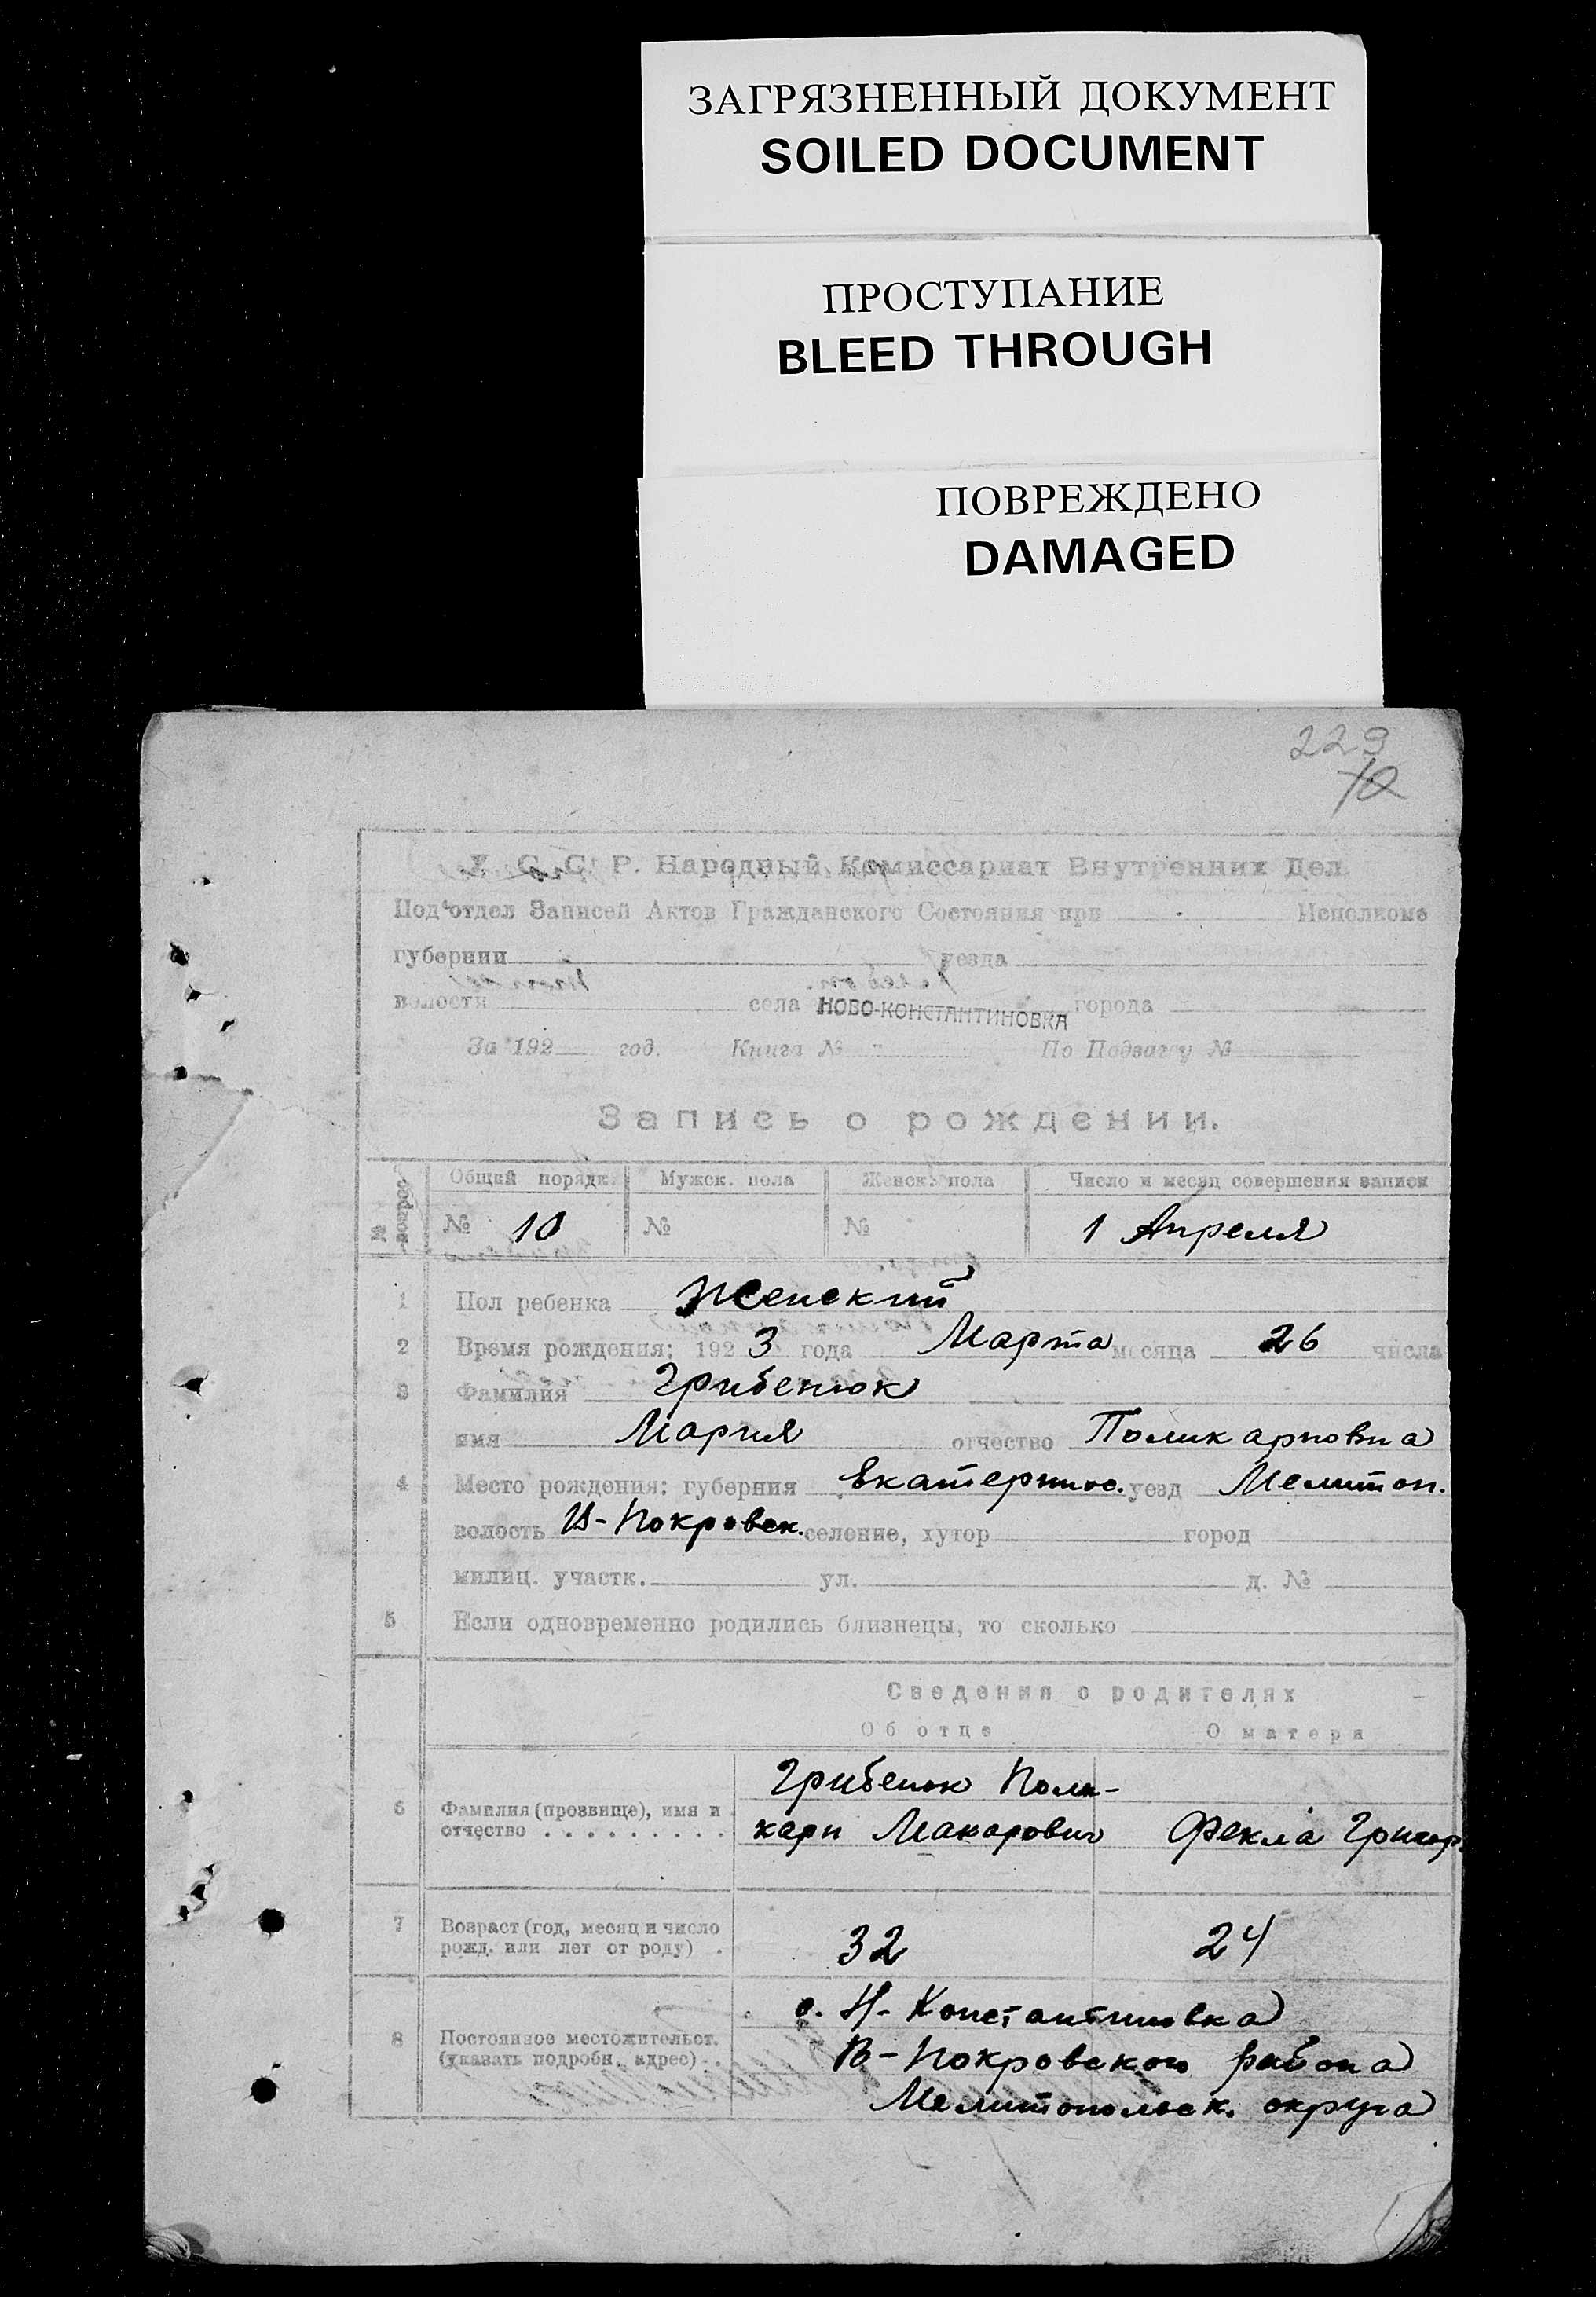 ЗАГРЯЗНЕННЫЙ ДОКУМЕНТ
SOILED DOCUMENT
ПРОСТУПАНИЕ
BLEED THROUGH
ПОВРЕЖДЕНО
DAMAGED
229
10
У. С. С. Р. Народный Комиссариат Внутренних Дел.
Подотдел Записей Актов Гражданского Состояния при Исполкоме
губернии уезда
волости села НОВО-КОНСТАНТИНОВКА города
За 192 год. Книга № По Подзагсу №
Запись о рождении.
№ вопрос. Общий порядк. Мужск. пола Женск. пола Число и месяц совершения записи
№ 10 № № 1 Апреля
1 Пол ребенка Женский
2 Время рождения: 1923 года Марта месяца 26 числа
3 Фамилия Грибенюк
имя Мария отчество Поликарповна
4 Место рождения: губерния Екатеринос. уезд Мелитоп.
волость В-Покровск. селение, хутор город
милиц. участк. ул. д. №
5 Если одновременно родились близнецы, то сколько
Сведения о родителях
Об отце О матери
Грибенюк Поли-
6 Фамилия (прозвище), имя и
отчество . . . . . . . . . карп Макарович Фекла Григор.
7 Возраст (год, месяц и число
рожд. или лет от роду) . 32 24
с. Н-Константиновка
8 Постоянное местожительст.
(указать подробн. адрес) . В-Покровского района
Мелитопольск. округа